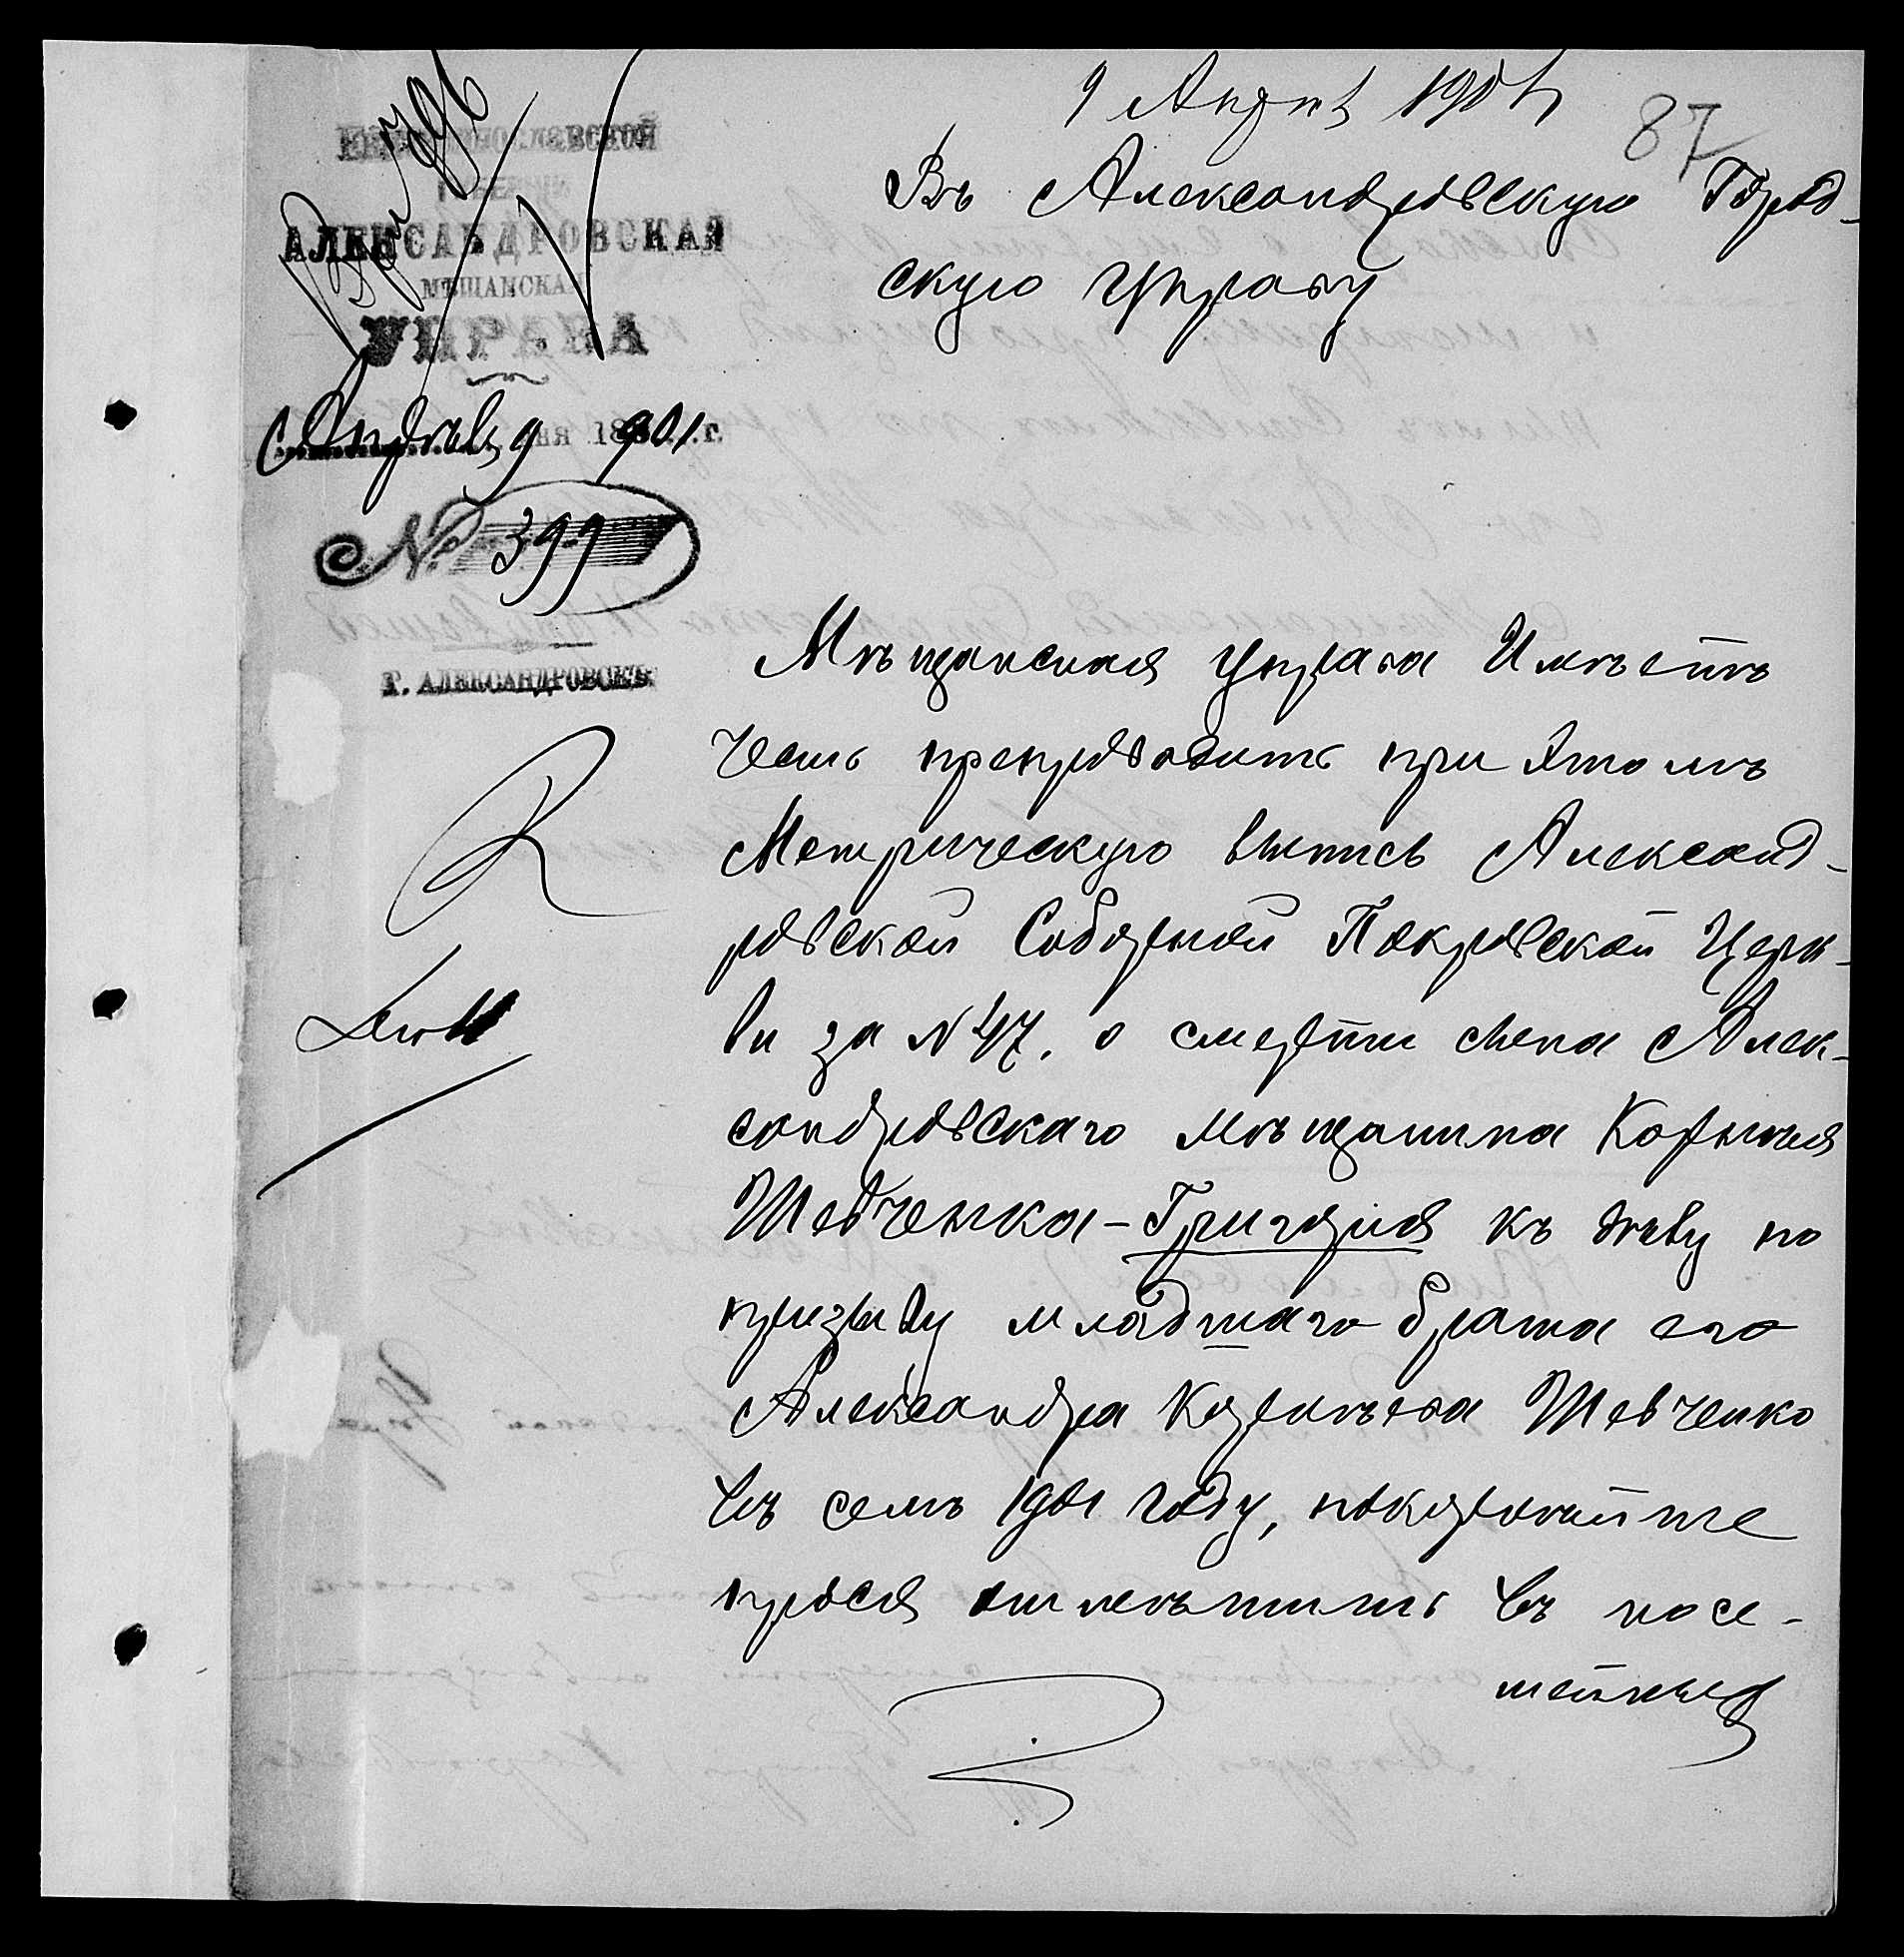 9 Апрѣл 1901
87
Въ Александровскую Город-
скую Управу
ЕКАТЕРИНОСЛАВСКОЙ
ГУБЕРНІИ
АЛЕКСАНДРОВСКАЯ
МѢЩАНСКАЯ
УПРАВА
Апрѣля 9 дня 1901 г.
№ 399
Г. АЛЕКСАНДРОВСКЪ.
Мѣщанская Управа Имѣетъ
честь препроводить при этомъ
Метрическую выпись Александ-
ровской Соборной Покровской Церк-
ви за № 47. о смерти сына Алек-
сандровскаго мѣщанина Корнилія
Шевченка-Григорія къ дѣлу по
призыву младшаго брата его
Александра Корнѣева Шевченко
въ семъ 1901 году, покорнѣйше
прося отмѣтить въ посе-
мейных